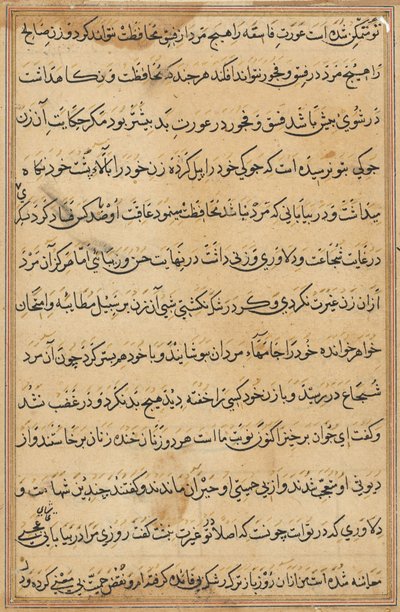 تو متمکن شده است عورت فاسقه را هیچ مرد از فسق محافظت نتواند کرد و زن صالحه
را هیچ مرد در فسق و فجور نتواند افکند هر چند که محافظت و نکاهداشت
در شوی بیش باشد فسق و فجور در عورت بد بیشتر بود مکر حکایت آن زن
جوکی بتو نرسیده است که جوکی خود را پیل کرده زن خود را بالاء پشت خود نکاه
میداشت و در بیابانی که مرد نباشد محافظت مینمود عاقبت او صد کس فساد کرد
در غایت شجاعت و دلاوری و زنی داشت در نهایت حسن و زیبائی اما هرکز آن مرد
ازان زن غیرت نکردی و در شک نکشتی شبی آن زن بر سبیل مطایبه و امتحان
خواهر خوانده خود را جامهاء مردان پوشانید و با خود هم بستر کرد چون آن مرد
شجاع در رسید و با زن خود کسی را خفته دید هیچ بد نکرد و در غضب نشد
و کفت ای جوان برخیز اکنون نوبت ما است هر دو زنان خنده زنان برخاستند و از
دیوثی او متعجب شدند و از بی حمیتی او حیران ماندند و کفتند چندین شهامت و
دلاوری که در تو است چونست که اصلا تو غیرت نیست کفت روزی مرا در بیابانی
معاینه شده است من ازان روز باز ترک رشک بی فائده کرفته‌ام و نقض حمیت بی معنی کرده و در